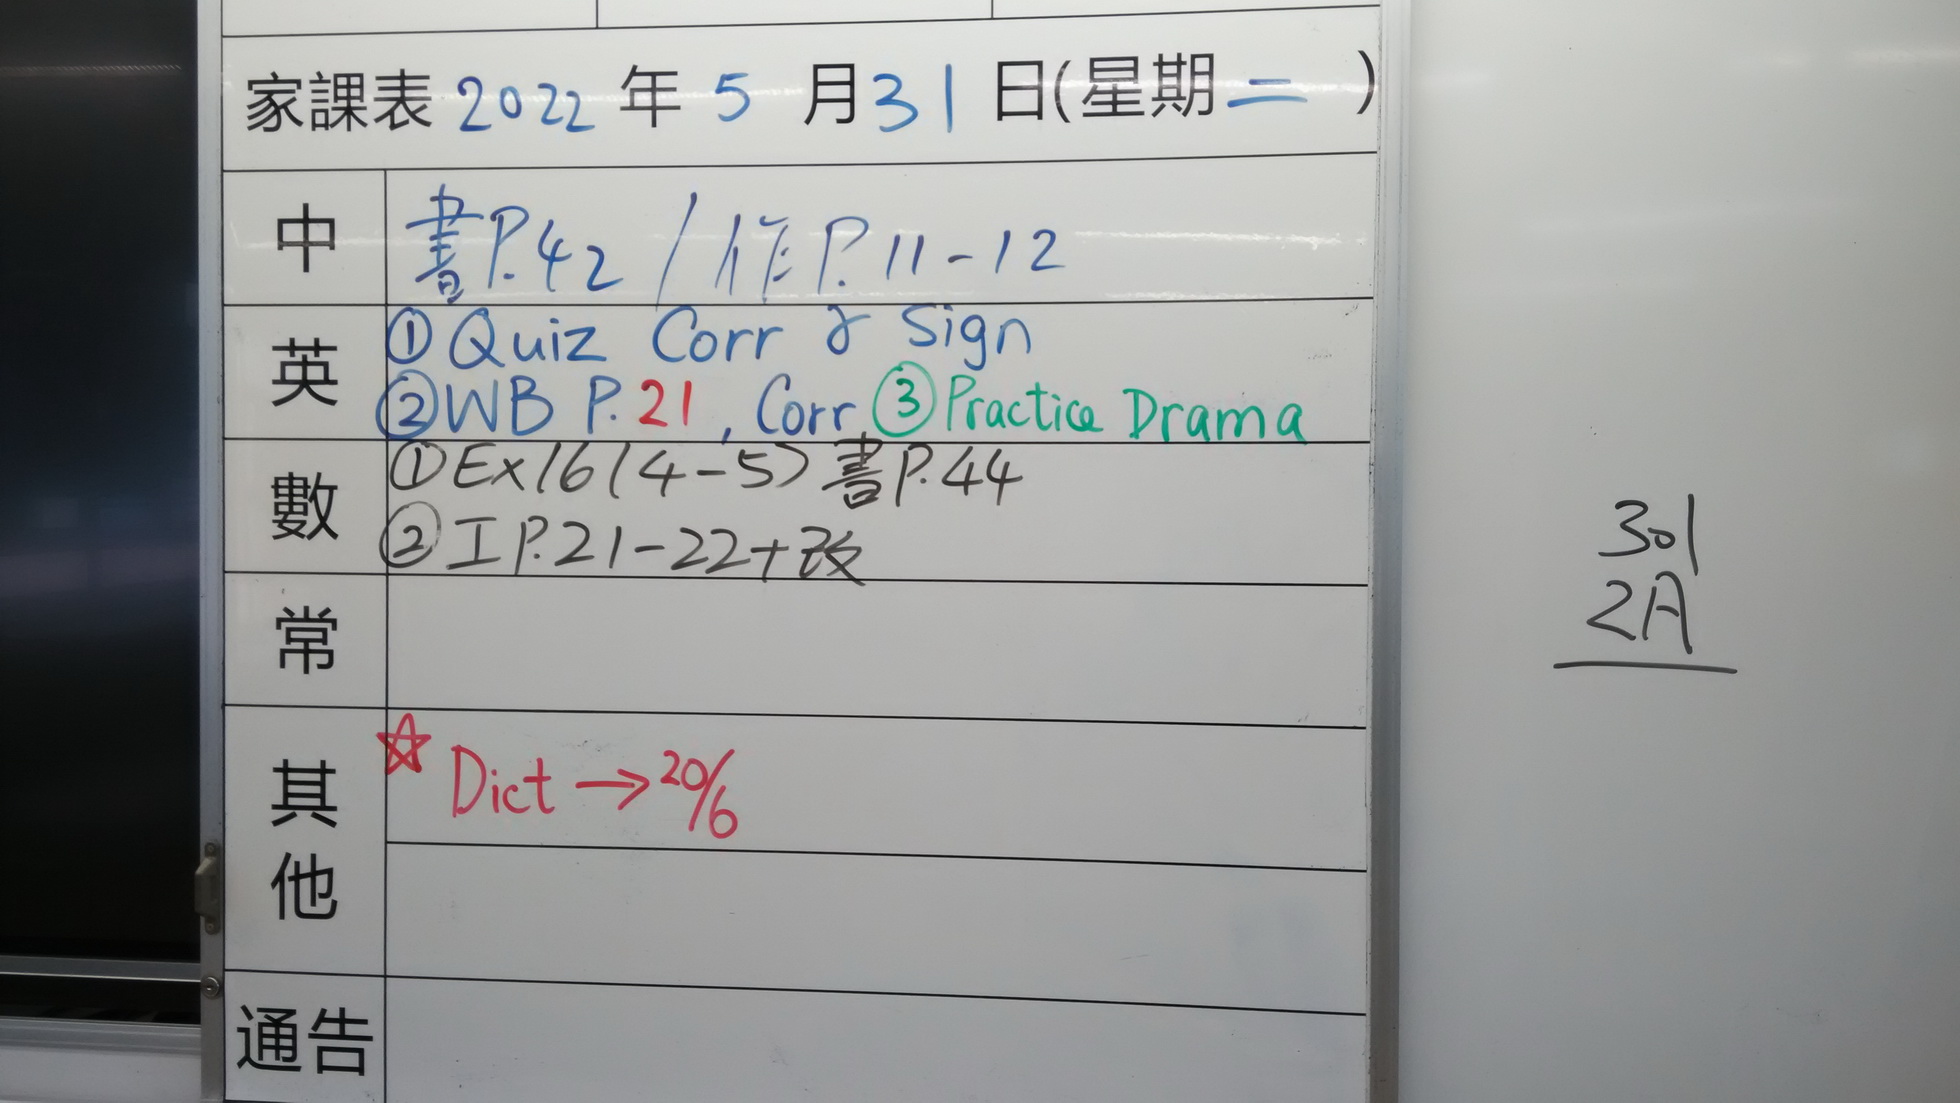 家課表 2022 年 5 月 31 日(星期二 )
中
書P.42 / 作P.11-12
英
①Quiz Corr & Sign
②WB P.21, Corr ③Practice Drama
數
①Ex16(4-5)書P.44
②工P.21-22+改
常
其他
☆ Dict → 20/6
通告
301
2A